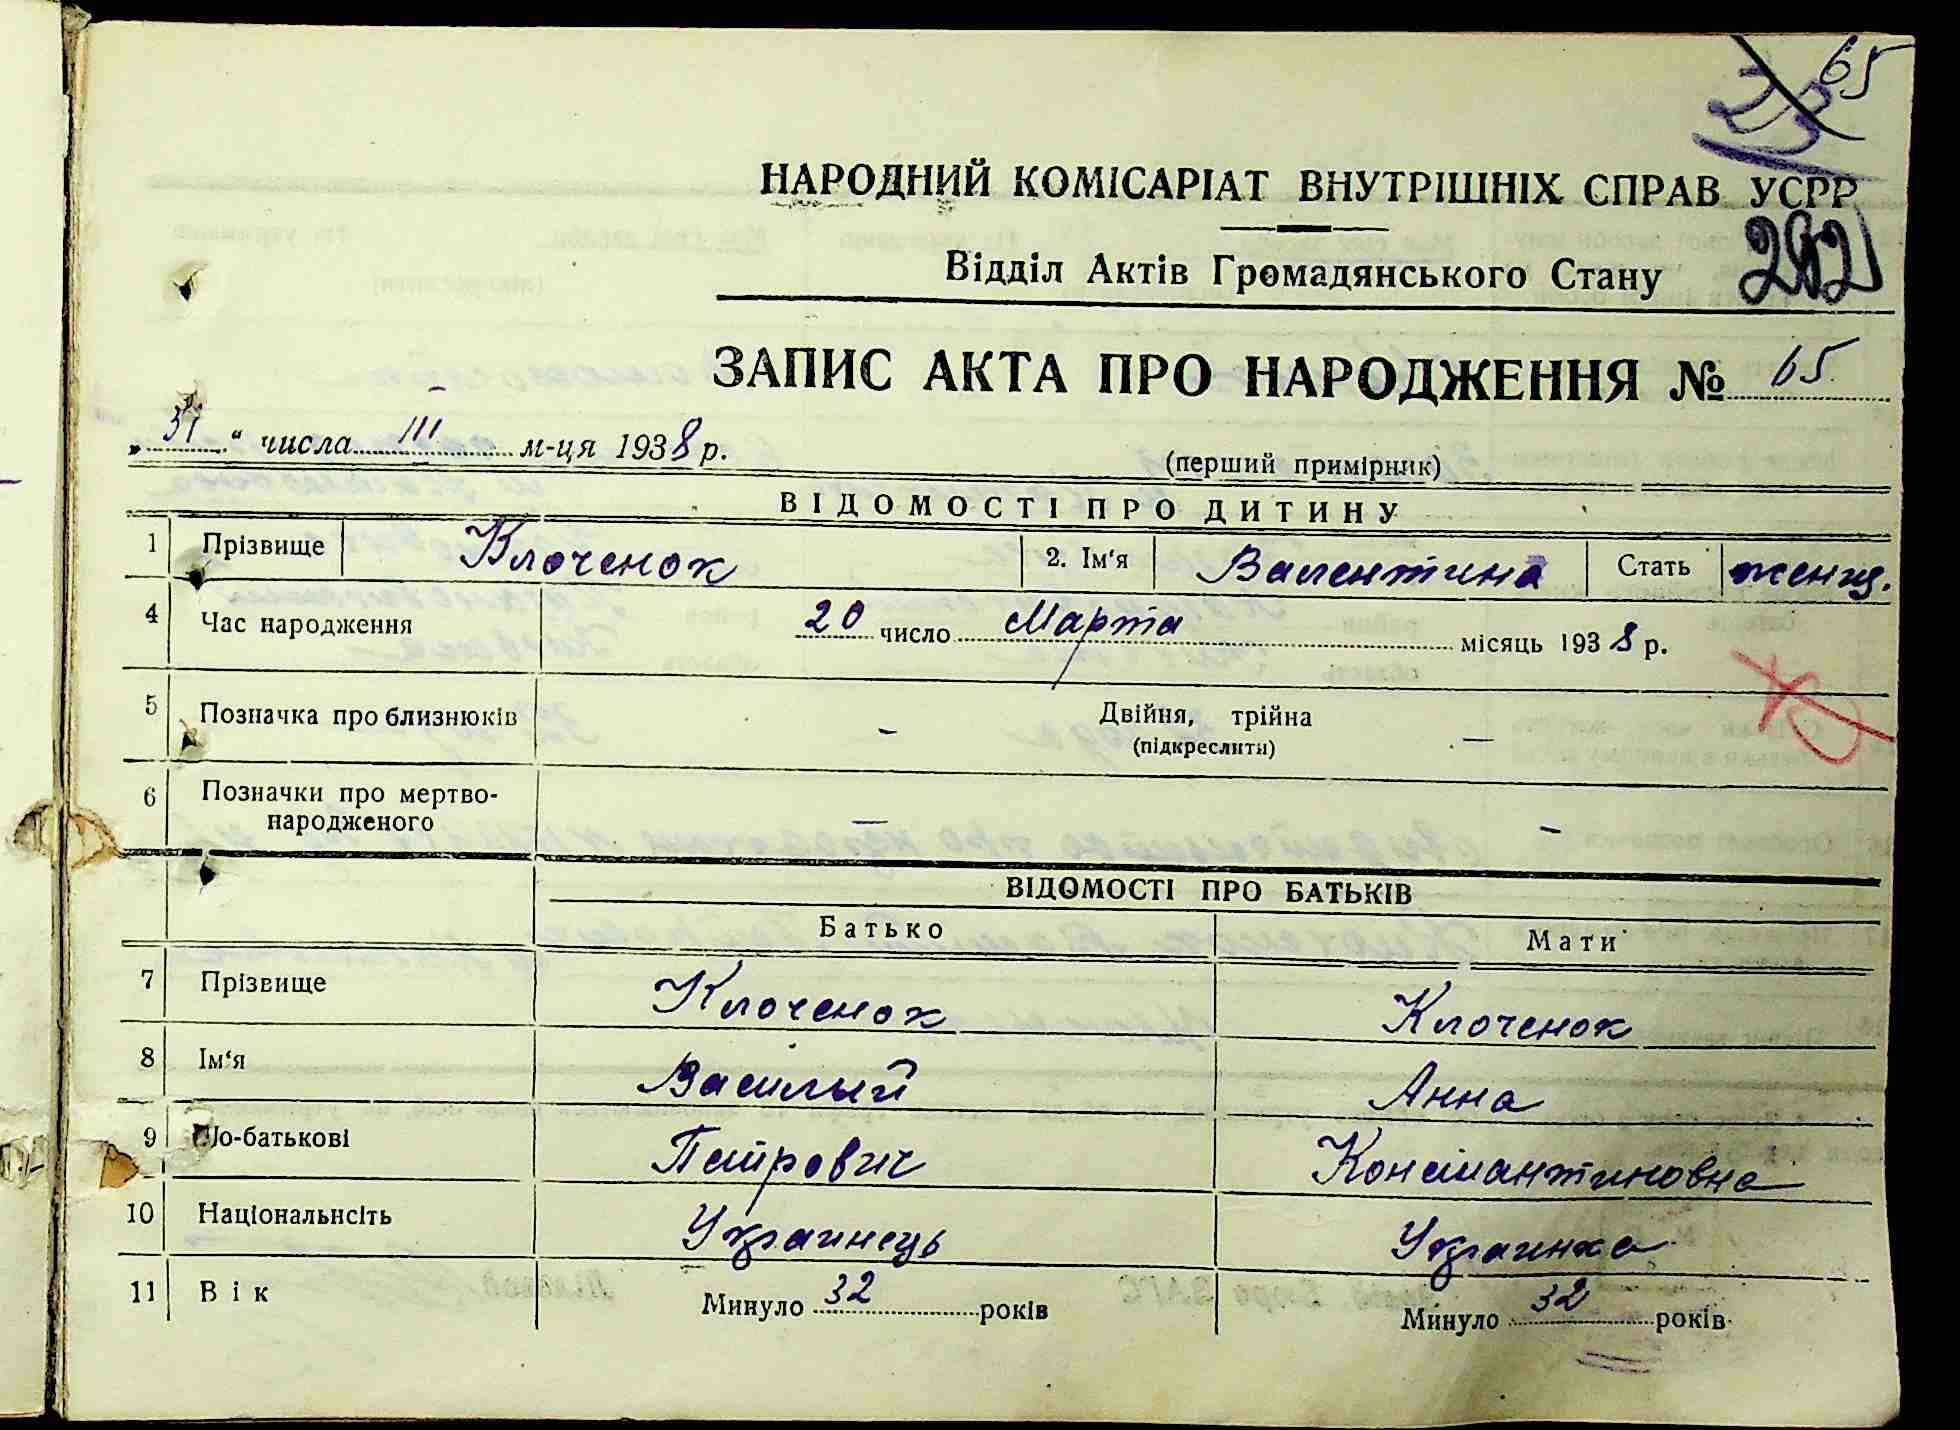 65
НАРОДНИЙ КОМІСАРІАТ ВНУТРІШНІХ СПРАВ УСРР
Відділ Актів Громадянського Стану
ЗАПИС АКТА ПРО НАРОДЖЕННЯ № 65
„31“ числа III м-ця 1938 р.
(перший примірник)
ВІДОМОСТІ ПРО ДИТИНУ
1 Прізвище Клоченок 2. Ім'я Валентина Стать женщ.
4 Час народження 20 число Марта місяць 1938 р.
5 Позначка про близнюків - Двійня, трійна —
(підкреслити)
6 Позначки про мертво-
народженого — -
ВІДОМОСТІ ПРО БАТЬКІВ
Батько Мати
7 Прізвище Клоченок Клоченок
8 Ім'я Василый Анна
9 По-батькові Петрович Константиновна
10 Національнсіть Украинець Украинка
11 Вік Минуло 32 років Минуло 32 років